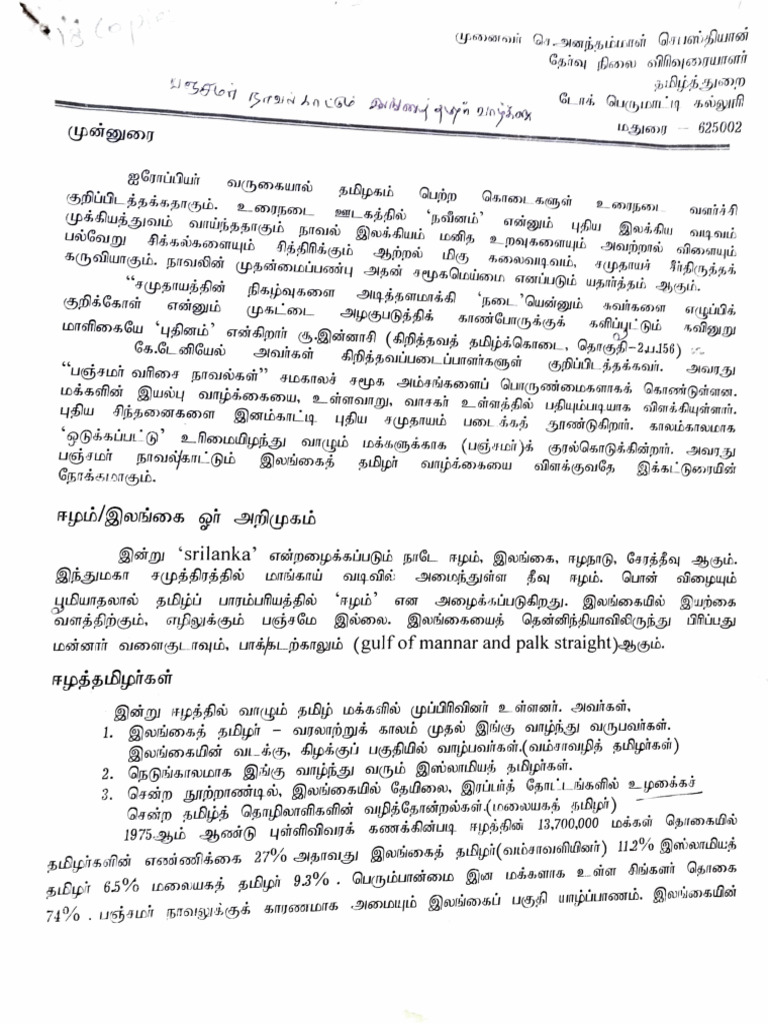 முனைவர் செ.அனந்தம்மாள் செபஸ்தியான்
தேர்வு நிலை விரிவுரையாளர்
தமிழ்த்துறை
டோக் பெருமாட்டி கல்லூரி
மதுரை – 625002
பஞ்சமர் நாவல் காட்டும் இலங்கைத் தமிழர் வாழ்க்கை
முன்னுரை
ஐரோப்பியர் வருகையால் தமிழகம் பெற்ற கொடைகளுள் உரைநடை வளர்ச்சி
குறிப்பிடத்தக்கதாகும். உரைநடை ஊடகத்தில் ‘நவீனம்’ என்னும் புதிய இலக்கிய வடிவம்
முக்கியத்துவம் வாய்ந்ததாகும் நாவல் இலக்கியம் மனித உறவுகளையும் அவற்றால் விளையும்
பல்வேறு சிக்கல்களையும் சித்திரிக்கும் ஆற்றல் மிகு கலைவடிவம், சமுதாயச் சீர்திருத்தக்
கருவியாகும். நாவலின் முதன்மைப்பண்பு அதன் சமூகமெய்மை எனப்படும் யதார்த்தம் ஆகும்.
“சமுதாயத்தின் நிகழ்வுகளை அடித்தளமாக்கி ‘நடை’யென்னும் சுவர்களை எழுப்பிக்
குறிக்கோள் என்னும் முகட்டை அழகுபடுத்திக் காண்போருக்குக் களிப்பூட்டும் கவினுறு
மாளிகையே ‘புதினம்’ என்கிறார் சூ.இன்னாசி (கிறித்தவத் தமிழ்க்கொடை, தொகுதி-2,ப.156)
கே.டேனியேல் அவர்கள் கிறித்தவப்படைப்பாளர்களுள் குறிப்பிடத்தக்கவர். அவரது
“பஞ்சமர் வரிசை நாவல்கள்” சமகாலச் சமூக அம்சங்களைப் பொருண்மைகளாகக் கொண்டுள்ளன.
மக்களின் இயல்பு வாழ்க்கையை, உள்ளவாறு, வாசகர் உள்ளத்தில் பதியும்படியாக விளக்கியுள்ளார்.
புதிய சிந்தனைகளை இனம்காட்டி புதிய சமுதாயம் படைக்கத் தூண்டுகிறார். காலம்காலமாக
‘ஒடுக்கப்பட்டு’ உரிமையிழந்து வாழும் மக்களுக்காக (பஞ்சமர்)க் குரல்கொடுக்கின்றார். அவரது
பஞ்சமர் நாவல்காட்டும் இலங்கைத் தமிழர் வாழ்க்கையை விளக்குவதே இக்கட்டுரையின்
நோக்கமாகும்.
ஈழம்/இலங்கை ஓர் அறிமுகம்
இன்று ‘srilanka’ என்றழைக்கப்படும் நாடே ஈழம், இலங்கை, ஈழநாடு, சேரத்தீவு ஆகும்.
இந்துமகா சமுத்திரத்தில் மாங்காய் வடிவில் அமைந்துள்ள தீவு ஈழம். பொன் விழையும்
பூமியாதலால் தமிழ்ப் பாரம்பரியத்தில் ‘ஈழம்’ என அழைக்கப்படுகிறது. இலங்கையில் இயற்கை
வளத்திற்கும், எழிலுக்கும் பஞ்சமே இல்லை. இலங்கையைத் தென்னிந்தியாவிலிருந்து பிரிப்பது
மன்னார் வளைகுடாவும், பாக்கடற்காலும் (gulf of mannar and palk straight)ஆகும்.
ஈழத்தமிழர்கள்
இன்று ஈழத்தில் வாழும் தமிழ் மக்களில் முப்பிரிவினர் உள்ளனர். அவர்கள்,
1. இலங்கைத் தமிழர் – வரலாற்றுக் காலம் முதல் இங்கு வாழ்ந்து வருபவர்கள்.
இலங்கையின் வடக்கு, கிழக்குப் பகுதியில் வாழ்பவர்கள்.(வம்சாவழித் தமிழர்கள்)
2. நெடுங்காலமாக இங்கு வாழ்ந்து வரும் இஸ்லாமியத் தமிழர்கள்.
3. சென்ற நூற்றாண்டில், இலங்கையில் தேயிலை, இரப்பர்த் தோட்டங்களில் உழைக்கச்
சென்ற தமிழ்த் தொழிலாளிகளின் வழித்தோன்றல்கள்.(மலையகத் தமிழர்)
1975ஆம் ஆண்டு புள்ளிவிவரக் கணக்கின்படி ஈழத்தின் 13,700,000 மக்கள் தொகையில்
தமிழர்களின் எண்ணிக்கை 27% அதாவது இலங்கைத் தமிழர்(வம்சாவளியினர்) 11.2% இஸ்லாமியத்
தமிழர் 6.5% மலையகத் தமிழர் 9.3% . பெரும்பான்மை இன மக்களாக உள்ள சிங்களர் தொகை
74% . பஞ்சமர் நாவலுக்குக் காரணமாக அமையும் இலங்கைப் பகுதி யாழ்ப்பாணம். இலங்கையின்